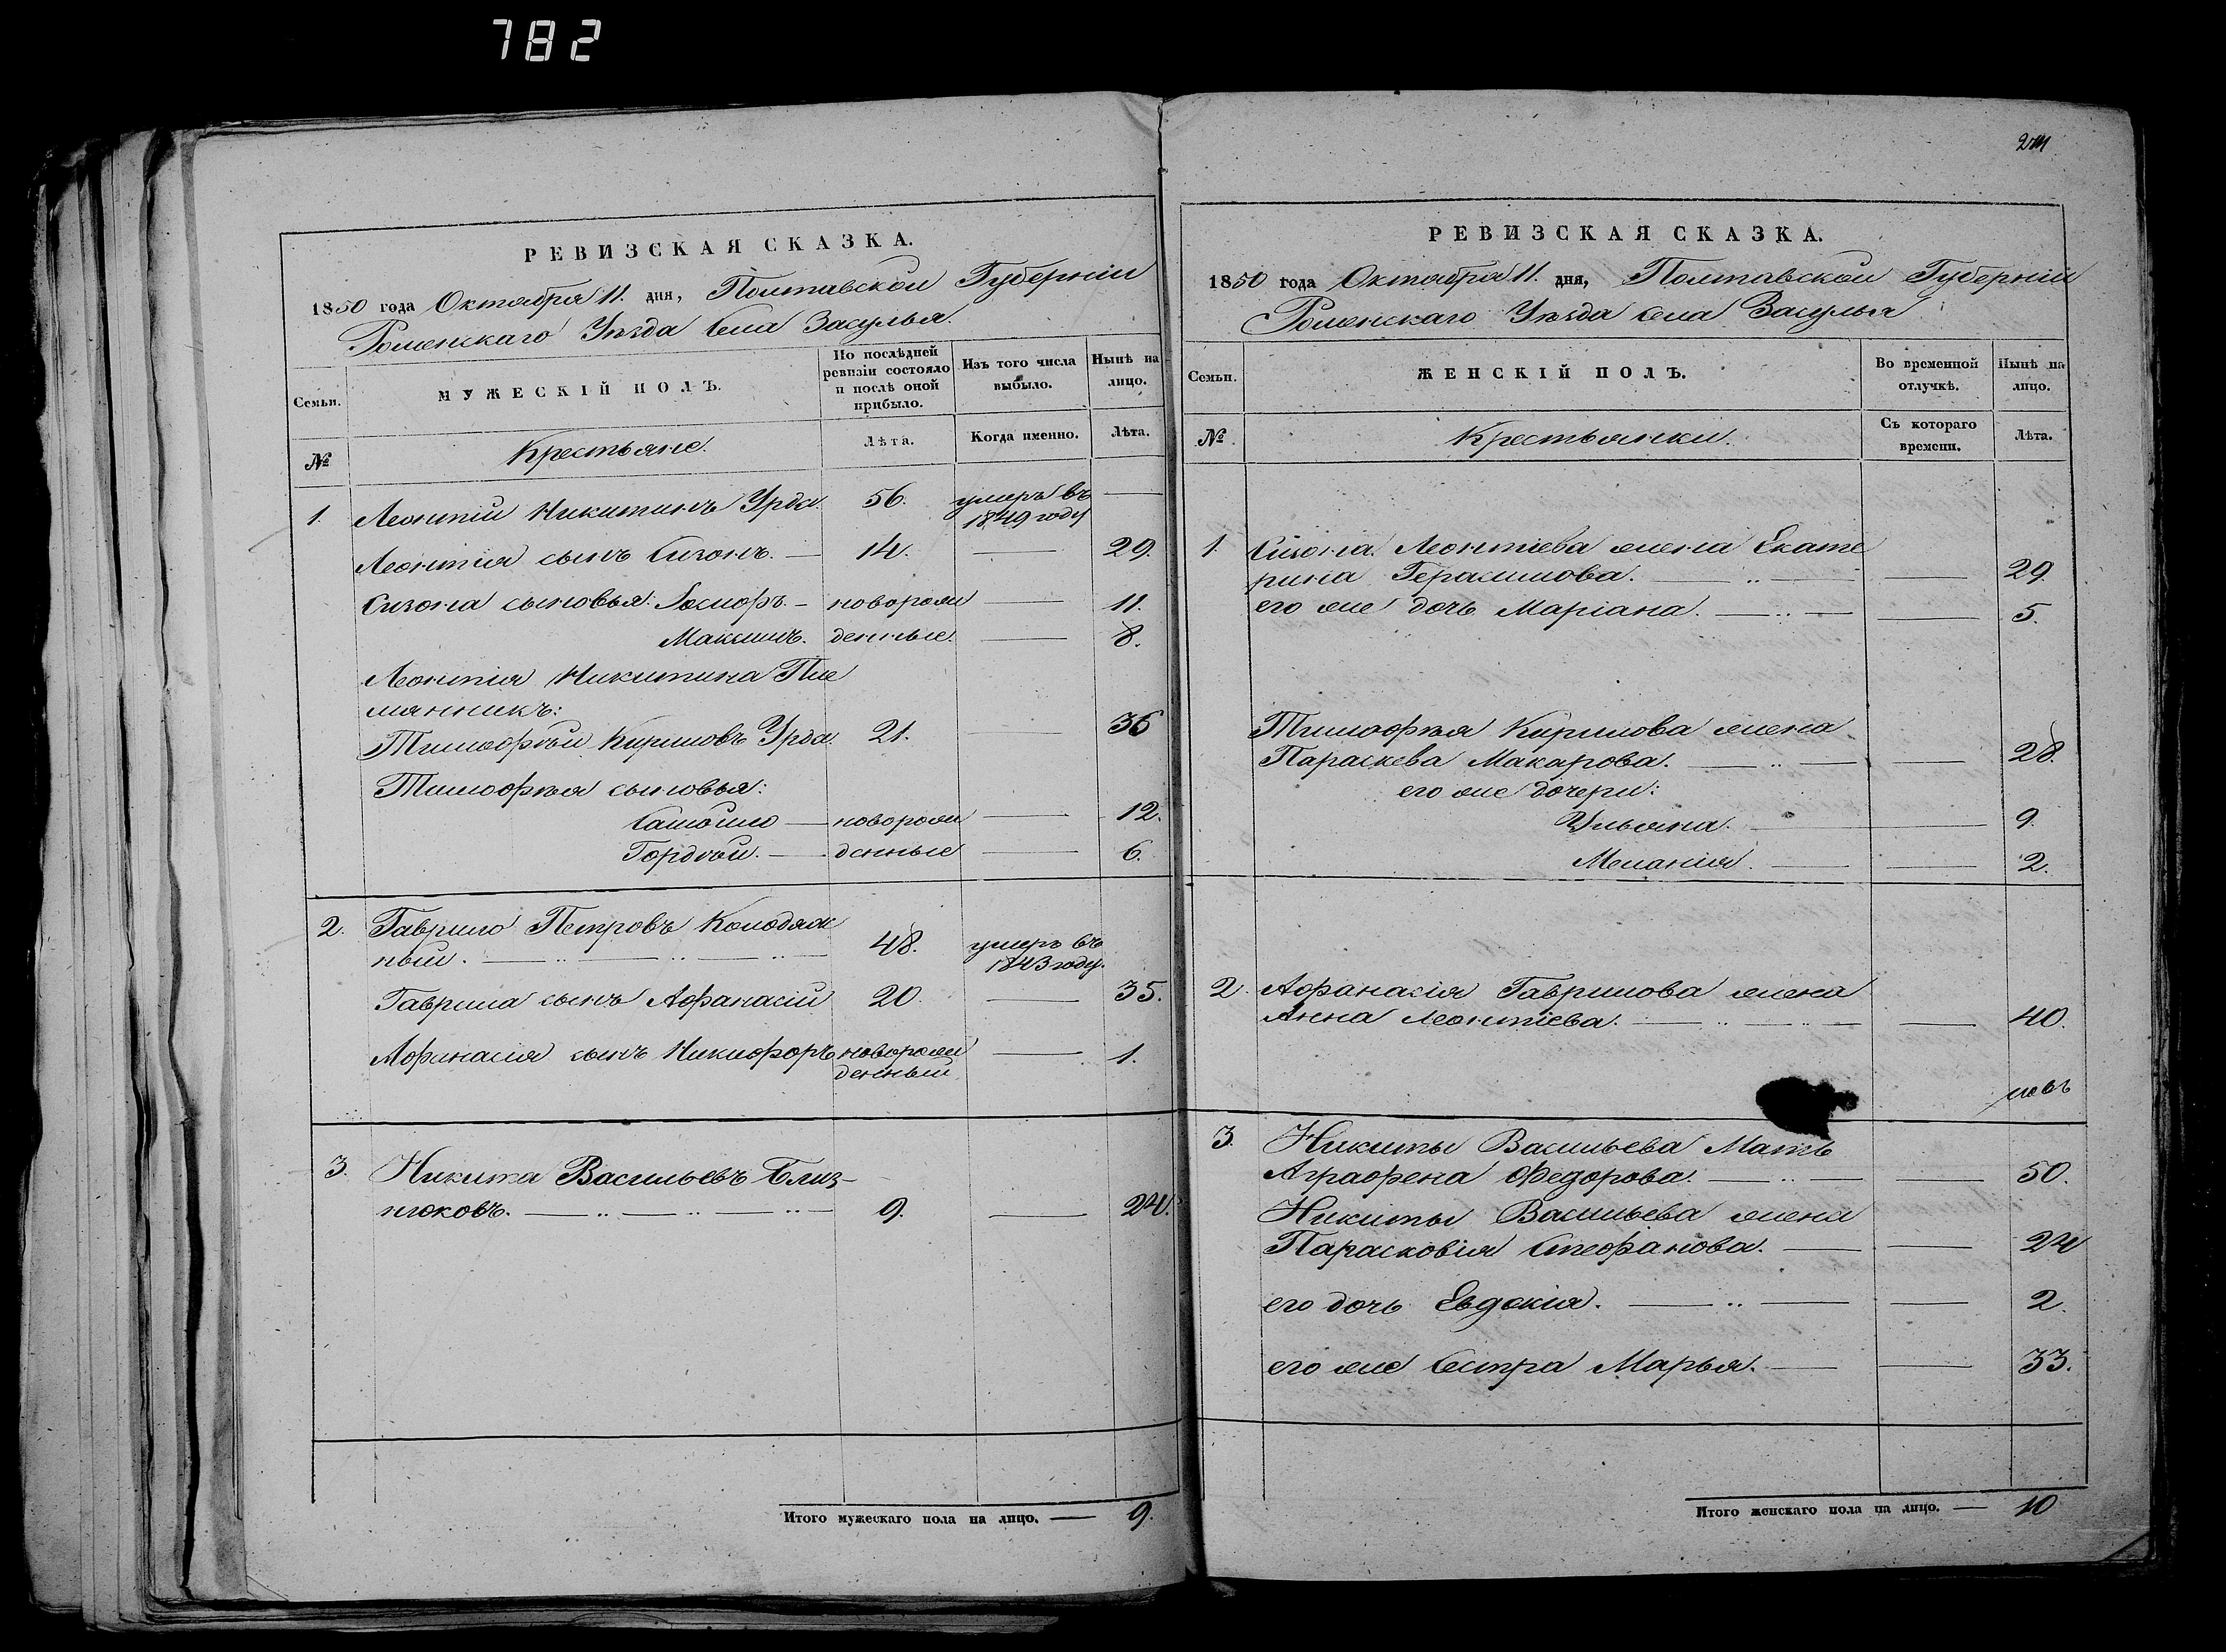 782
РЕВИЗСКАЯ СКАЗКА.
1850 года Октября 11. дня, Полтавской Губерніи
Роменскаго Уѣзда Села Засулья.
Семьи.
МУЖЕСКІЙ ПОЛЪ.
По послѣдней ревизіи состояло и послѣ оной прибыло.
Изъ того числа выбыло.
Нынѣ на лицо.
№
Крестьяне.
Лѣта.
Когда именно.
Лѣта.
1. Леонтій Никитинъ Урда. 56. умеръ въ 1849 году —
Леонтія сынъ Сизонъ. — 14. — 29.
Сизона сыновья: — новорож — 11.
Максимъ. денные. — 8.
Леонтія Никитина Пле
мянникъ:
Тимофѣй Кириловъ Урда. 21. — 36
Тимофѣя сыновья:
Самойло — новорож — 12.
Гордѣй. — денные — 6.
2. Гаврило Петровъ Колодяж
ный. — 48. умеръ въ 1843 году.
Гаврила сынъ Афанасій 20. — 35.
Афанасія сынъ Никифоръ новорож
денный — 1.
3. Никита Васильевъ Близ-
нюковъ. — 9. — 24.
Итого мужескаго пола на лицо. — 9.
РЕВИЗСКАЯ СКАЗКА.
1850 года Октября 11. дня, Полтавской Губерніи
Роменскаго Уѣзда села Засулья
Семьи.
ЖЕНСКІЙ ПОЛЪ.
Во временной отлучкѣ.
Нынѣ на лицо.
№
Крестьянки.
Съ котораго времени.
Лѣта.
1. Сизона Леонтіева жена Екате
рина Герасимова. — 29.
его же дочь Маріана. — 5.
Тимофѣя Кирилова жена
Параскева Макарова. — 28.
его же дочери:
Ульяна. — 9.
Меланія. — 2.
2. Афанасія Гаврилова жена
Анна Леонтіева. — 40.
3. Никиты Васильева Мать
Аграфена Федорова. — 50.
Никиты Васильева жена
Парасковія Стефанова. — 24
его дочь Евдокія. — 2.
его же Сестра Марья. — 33.
Итого женскаго пола на лицо. — 10